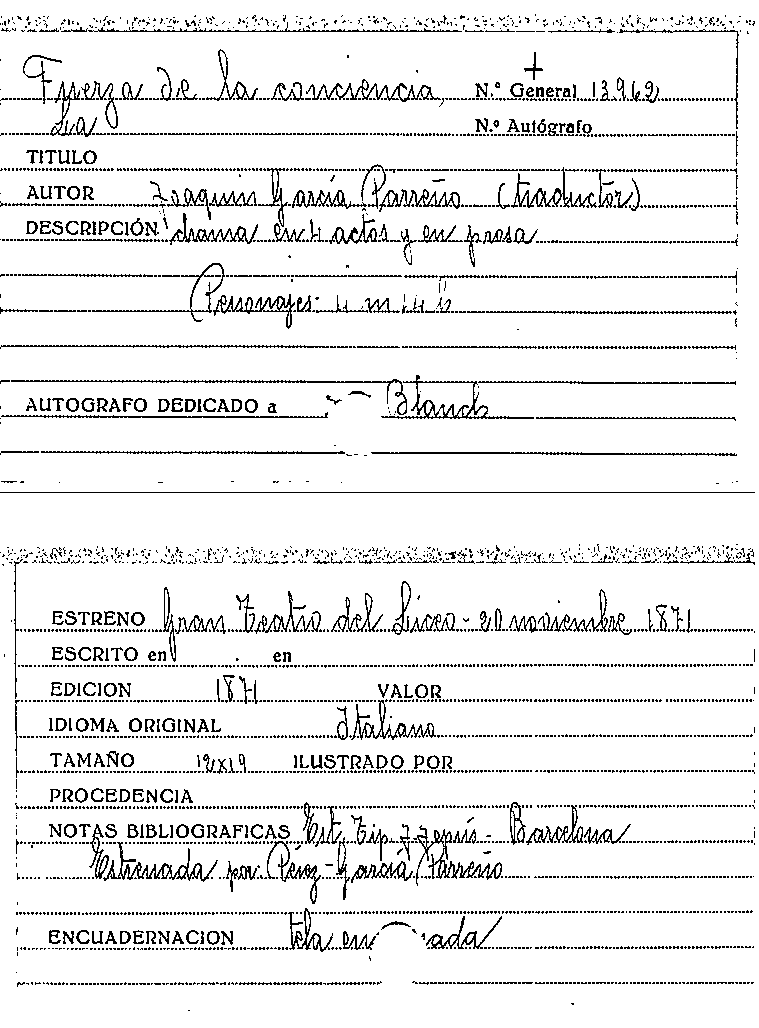 Fuerza de la conciencia, N.º General 13.962
La N.º Autógrafo
TITULO
AUTOR Joaquin García Parreño (traductor)
DESCRIPCIÓN drama en 4 actos y en prosa
Personajes: 4 m 14 h
AUTOGRAFO DEDICADO a Blanch
ESTRENO Gran Teatro del Liceo - 20 noviembre 1871
ESCRITO en en
EDICION 1871 VALOR
IDIOMA ORIGINAL Italiano
TAMAÑO 12x19 ILUSTRADO POR
PROCEDENCIA
NOTAS BIBLIOGRAFICAS Est. Tip. Barcelona
Estrenada por: Pérez - García Parreño
ENCUADERNACION tela